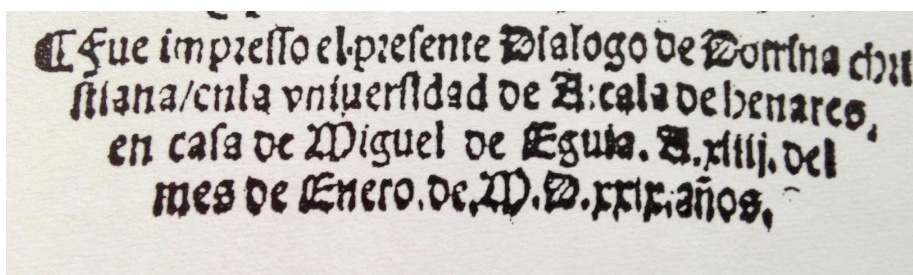 ¶ Fue impreſſo el preſente Dialogo de Dotrina chri
ſtiana/enla vniuerſidad de Alcala de henares,
en caſa de Miguel de Eguia. A.xiiij. del
mes de Enero.de.M.D.xxix.años.